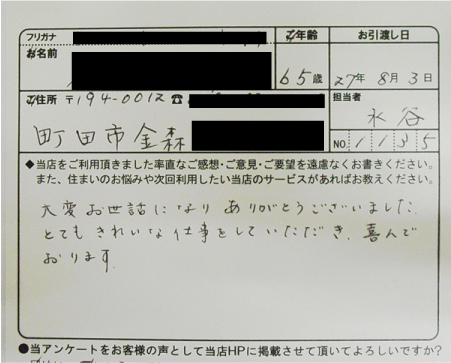 フリガナ
ご年齢
お引渡し日
お名前
65歳
27年 8月 3日
ご住所 〒194-0012 ☎
担当者
水谷
町田市金森
NO. 1135
◆当店をご利用頂きました率直なご感想・ご意見・ご要望を遠慮なくお書きください。
また、住まいのお悩みや次回利用したい当店のサービスがあればお教えください。
大変お世話になり ありがとうございました.
とても きれいな仕事をしていただき. 喜んで
おります.
●当アンケートをお客様の声として当店HPに掲載させて頂いてよろしいですか?